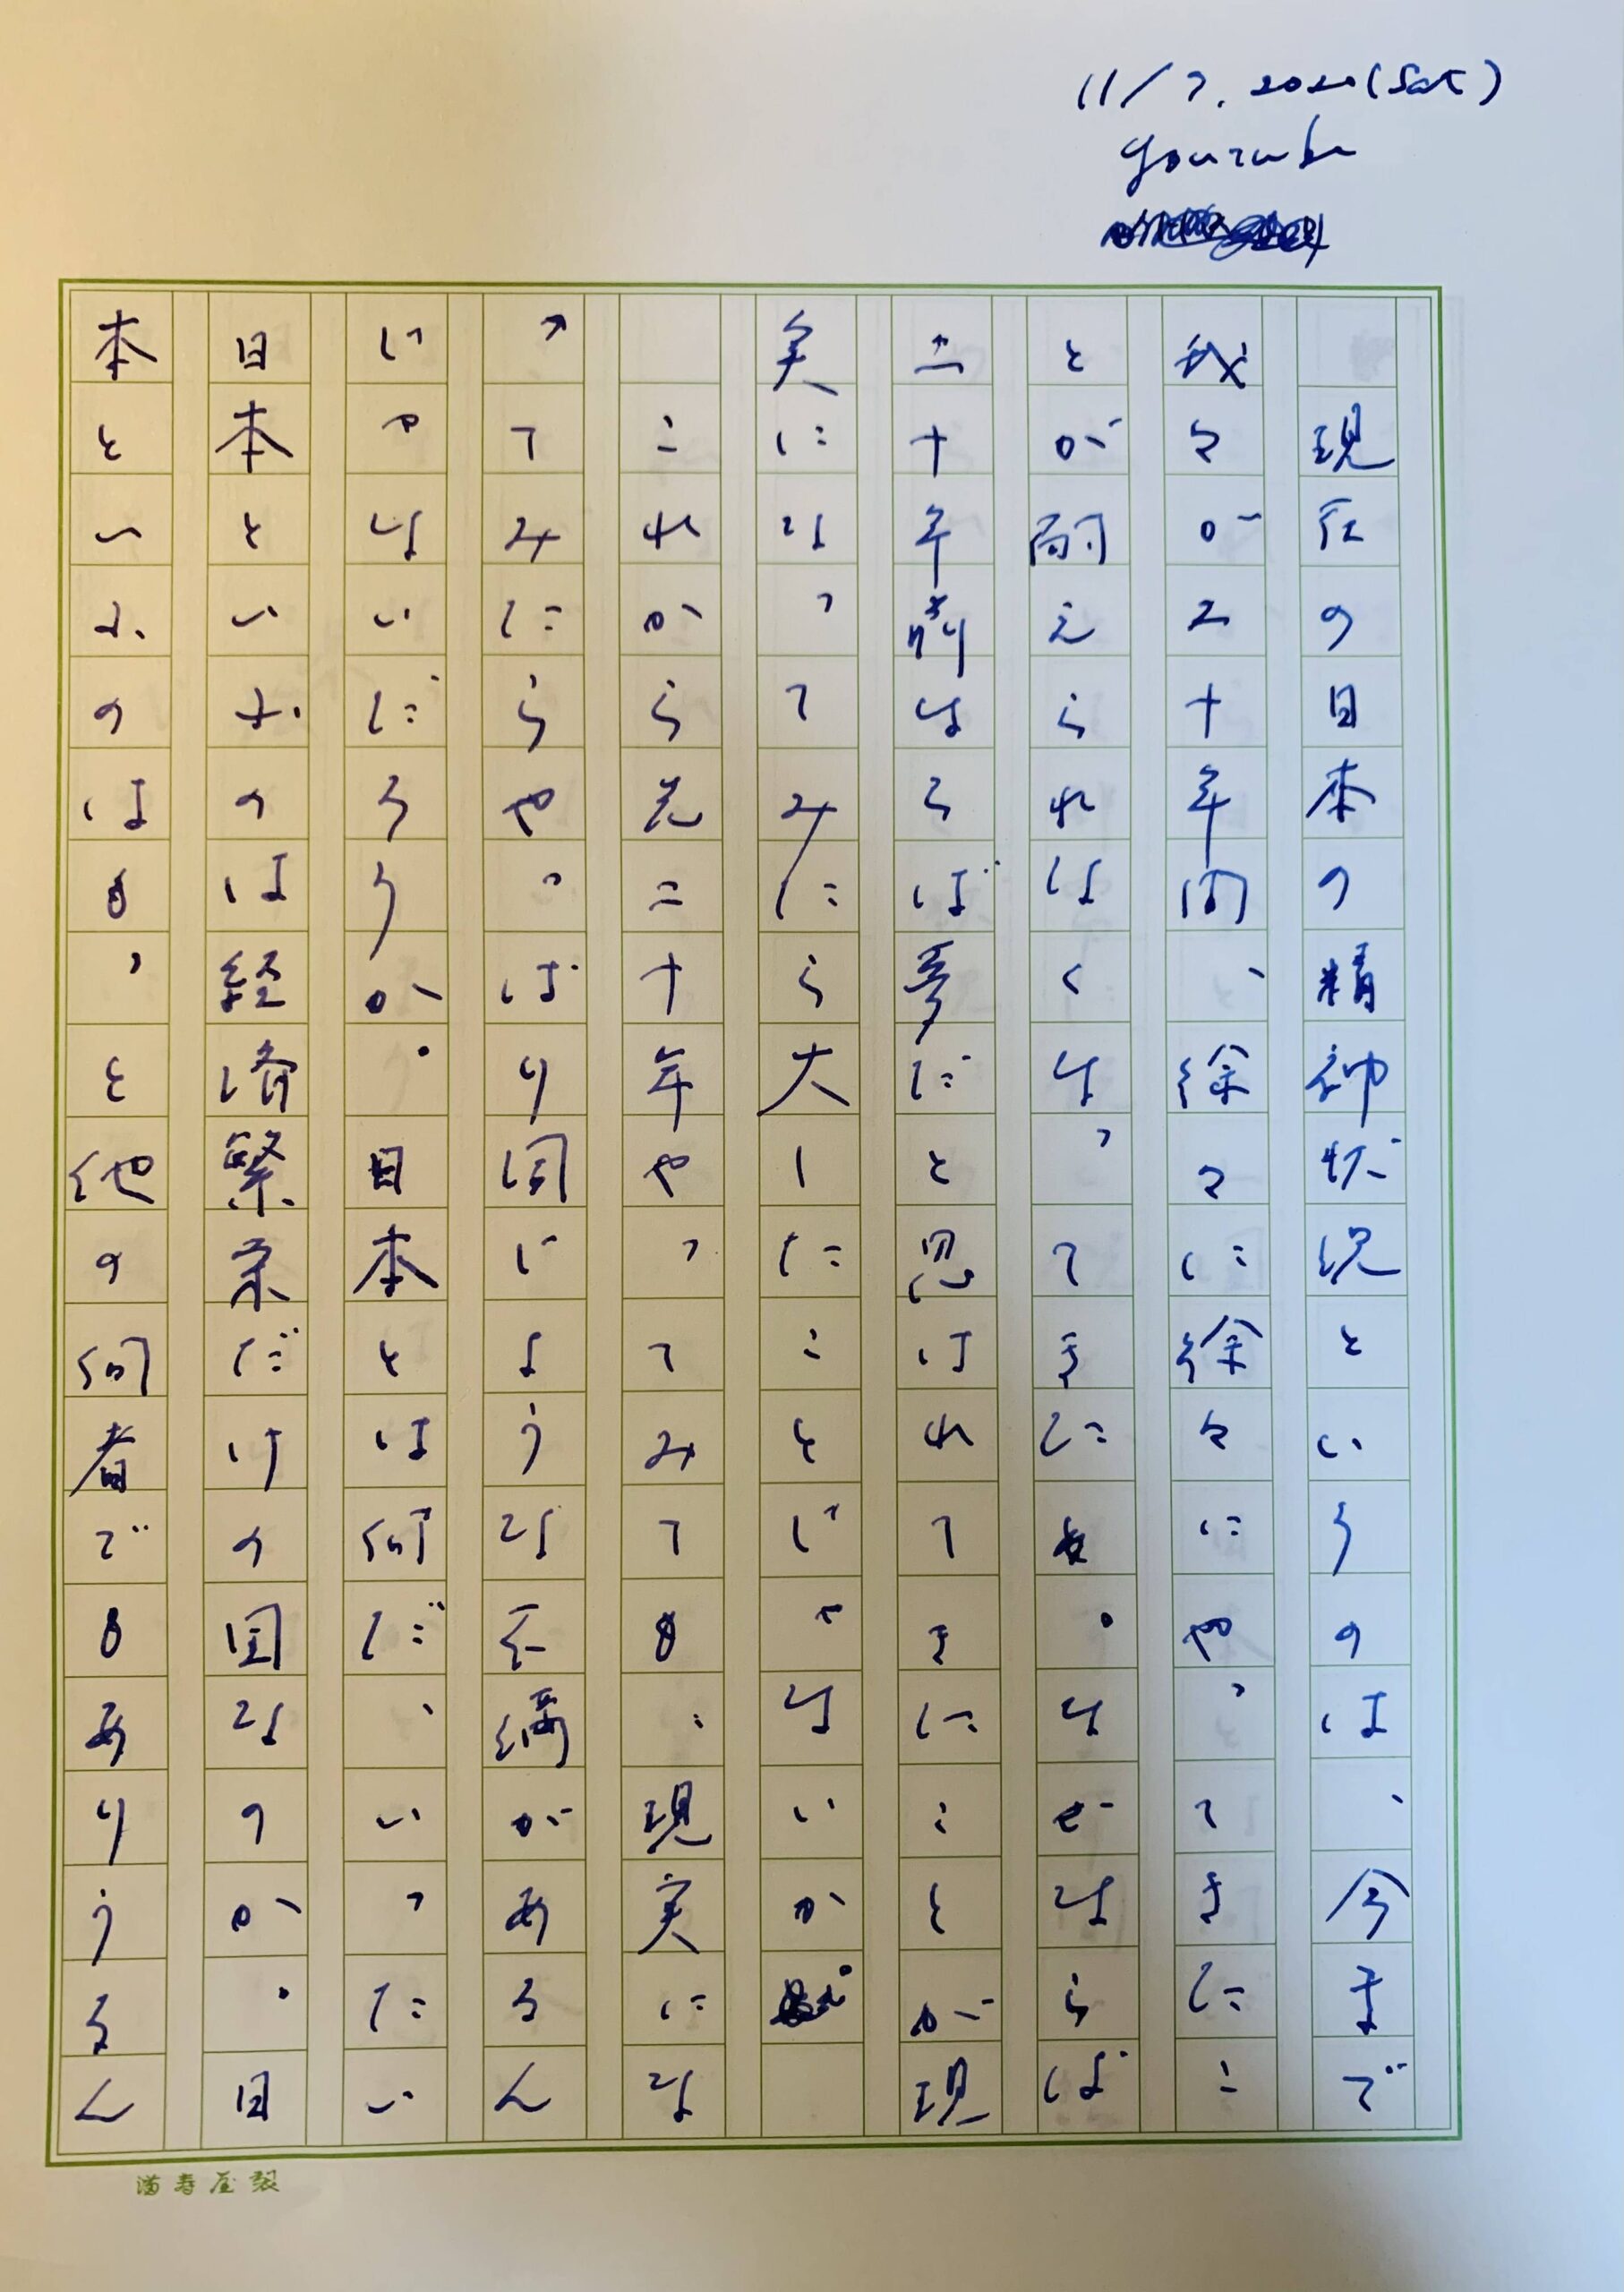 11/7. 2020(Sat)
youtube
現在の日本の精神状況というのは、今まで
我々が二十年間、徐々に徐々にやってきたこ
とが耐えられなくなってきた。なぜならば
二十年前ならば夢だと思われてきたことが現
実になってみたら大したことじゃないか
これから先二十年やってみても、現実にな
ってみたらやっぱり同じような不満があるん
じゃないだろうか。日本とは何だ、いったい
日本といふのは経済繁栄だけの国なのか。日
本といふのはもっと他の何者でもありうるん
満寿屋製